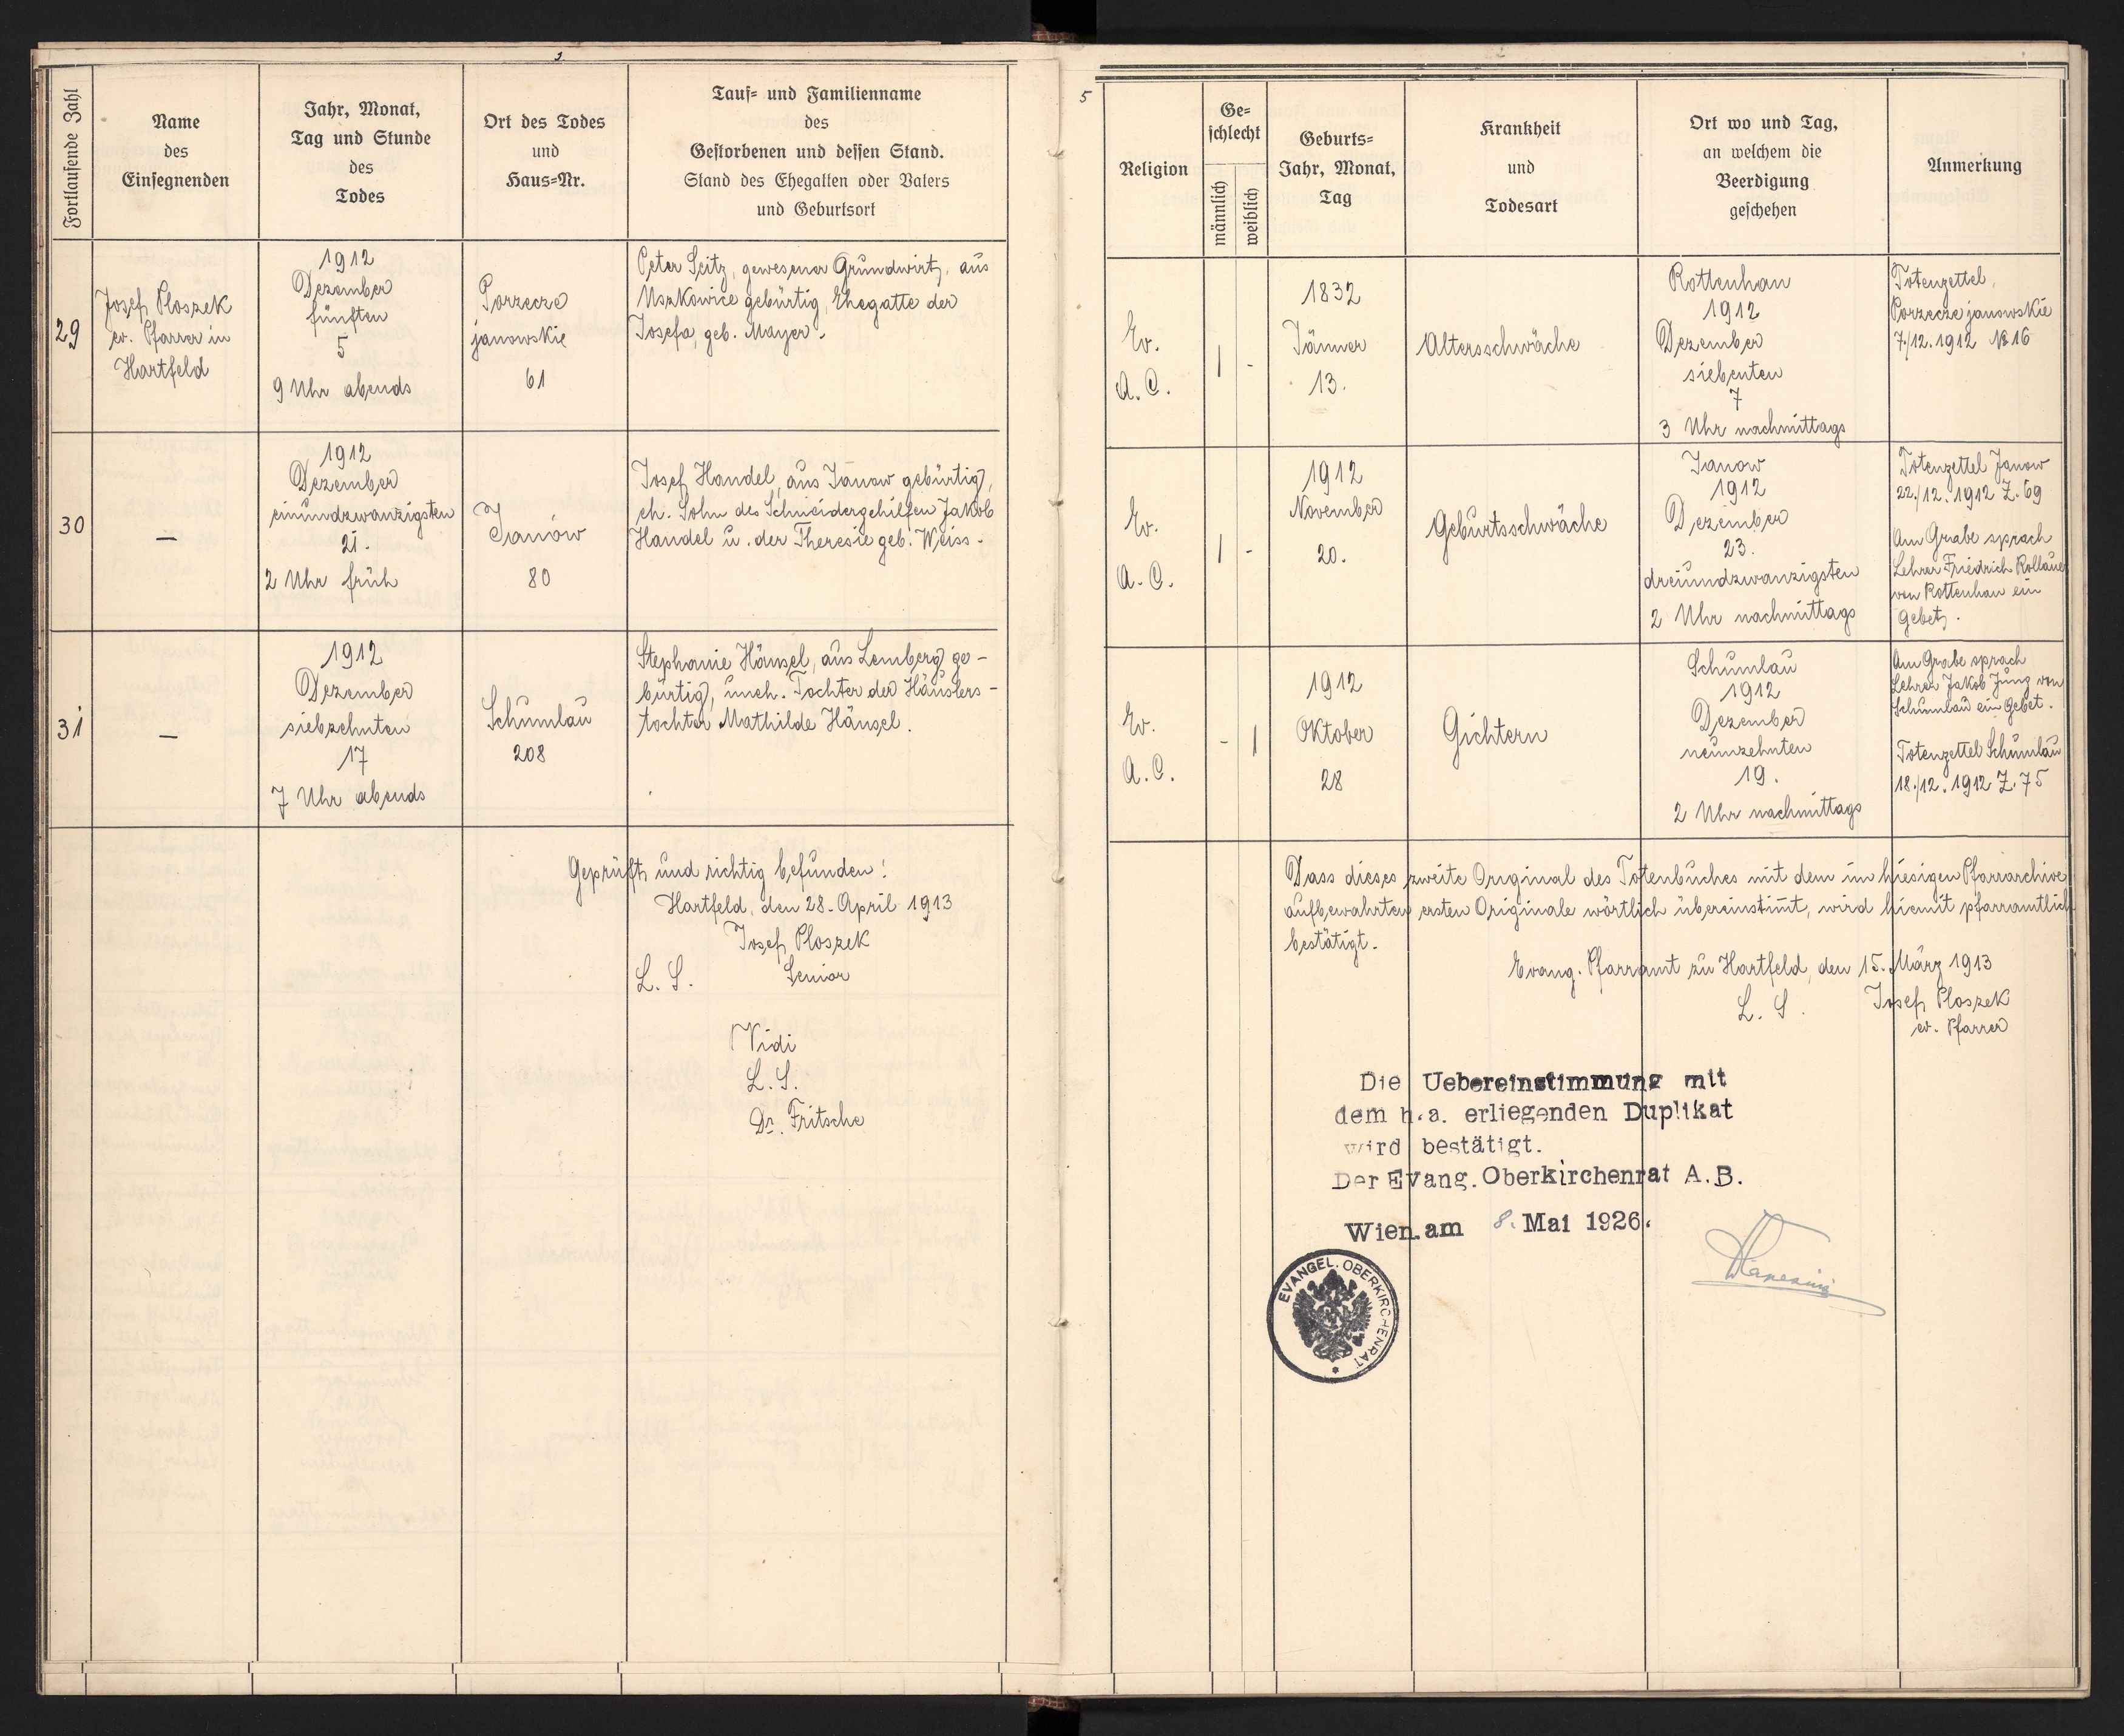 3
Fortlaufende Zahl
Name
des
Einsegnenden
Jahr, Monat,
Tag und Stunde
des
Todes
Ort des Todes
und
Haus-Nr.
Tauf- und Familienname
des
Gestorbenen und dessen Stand.
Stand des Ehegatten oder Vaters
und Geburtsort
29
Josef Ploszek
ev. Pfarrer in
Hartfeld
1912
Dezember
fünften
5
9 Uhr abends
Porzecze
janowskie
61
Peter Seitz, gewesener Grundwirt, aus
Uszkowice gebürtig, Ehegatte der
Josefa, geb. Mayer.
30
—
1912
Dezember
einundzwanzigsten
21.
2 Uhr früh
Janów
80
Josef Handel, aus Janow gebürtig,
eh. Sohn des Schneidergehilfen Jakob
Handel u. der Theresie geb. Weiss.
31
—
1912
Dezember
siebzehnten
17
7 Uhr abends
Schumlau
208
Stephanie Hänsel, aus Lemberg ge-
bürtig, uneh. Tochter der Häuslers-
tochter Mathilde Hänsel.
Geprüft und richtig befunden!
Hartfeld, den 28. April 1913
Josef Ploszek
L. S. Senior
Vidi
L. S.
Dr. Fritsche
5
Religion
Ge-
schlecht
männlich
weiblich
Geburts-
Jahr, Monat,
Tag
Krankheit
und
Todesart
Ort wo und Tag,
an welchem die
Beerdigung
geschehen
Anmerkung
Ev.
A. C.
1 -
1832
Jänner
13.
Altersschwäche
Rottenhan
1912
Dezember
siebenten
7
3 Uhr nachmittags
Totenzettel,
Porzecze janowskie
7./12. 1912 № 16
Ev.
A. C.
1 -
1912
November
20.
Geburtsschwäche
Janow
1912
Dezember
23.
dreiundzwanzigsten
2 Uhr nachmittags
Totenzettel Janow
22./12. 1912 Z. 69
Am Grabe sprach
Lehrer Friedrich Kollauer
von Rottenhan ein
Gebet.
Ev.
A. C.
- 1
1912
Oktober
28
Gichtern
Schumlau
1912
Dezember
neunzehnten
19.
2 Uhr nachmittags
Am Grabe sprach
Lehrer Jakob Jung von
Schumlau ein Gebet.
Totenzettel Schumlau
18./12. 1912 Z. 75
Dass dieses zweite Original des Totenbuches mit dem im hiesigen Pfarrarchive
aufbewahrten ersten Originale wörtlich übereinstim̅t, wird hiemit pfarramtlich
bestätigt.
Evang. Pfarramt zu Hartfeld, den 15. März 1913
L. S. Josef Ploszek
ev. Pfarrer
Die Uebereinstimmung mit
dem h.a. erliegenden Duplikat
wird bestätigt.
Der Evang. Oberkirchenrat A.B.
Wien am 8. Mai 1926.
EVANGEL. OBERKIRCHENRAT